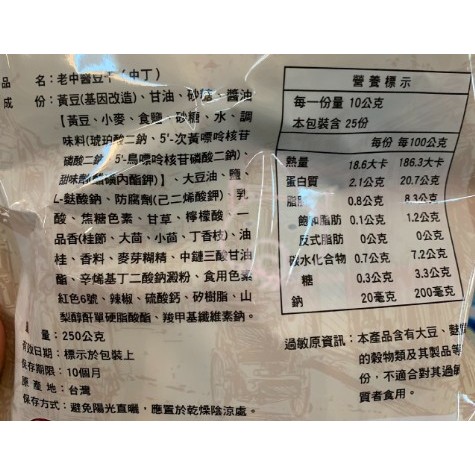 品　名：老中醫豆干(中丁)
成　份：黃豆(基因改造)、甘油、砂糖、醬油
【黃豆、小麥、食鹽、砂糖、水、調
味料(琥珀酸二鈉、5'-次黃嘌呤核苷
磷酸二鈉、5'-鳥嘌呤核苷磷酸二鈉)、
甜味劑(醋磺內酯鉀)】、大豆油、鹽、
L-麩酸鈉、防腐劑(己二烯酸鉀)、乳
酸、焦糖色素、甘草、檸檬酸、一
品香(桂節、大茴、小茴、丁香枝)、油
桂、香料、麥芽糊精、中鏈三酸甘油
酯、辛烯基丁二酸鈉澱粉、食用色素
紅色6號、辣椒、硫酸鈣、矽樹脂、山
梨醇酐單硬脂酸酯、羧甲基纖維素鈉。
量：250公克
有效日期：標示於包裝上
保存期限：10個月
原產地：台灣
保存方式：避免陽光直曬，應置於乾燥陰涼處。
營養標示
每一份量 10公克
本包裝含 25份
每份 每100公克
熱量 18.6大卡 186.3大卡
蛋白質 2.1公克 20.7公克
脂肪 0.8公克 8.3公克
飽和脂肪 0.1公克 1.2公克
反式脂肪 0公克 0公克
碳水化合物 0.7公克 7.2公克
糖 0.3公克 3.3公克
鈉 20毫克 200毫克
過敏原資訊：本產品含有大豆、麩質
的穀物類及其製品等
份，不適合對其過敏
質者食用。